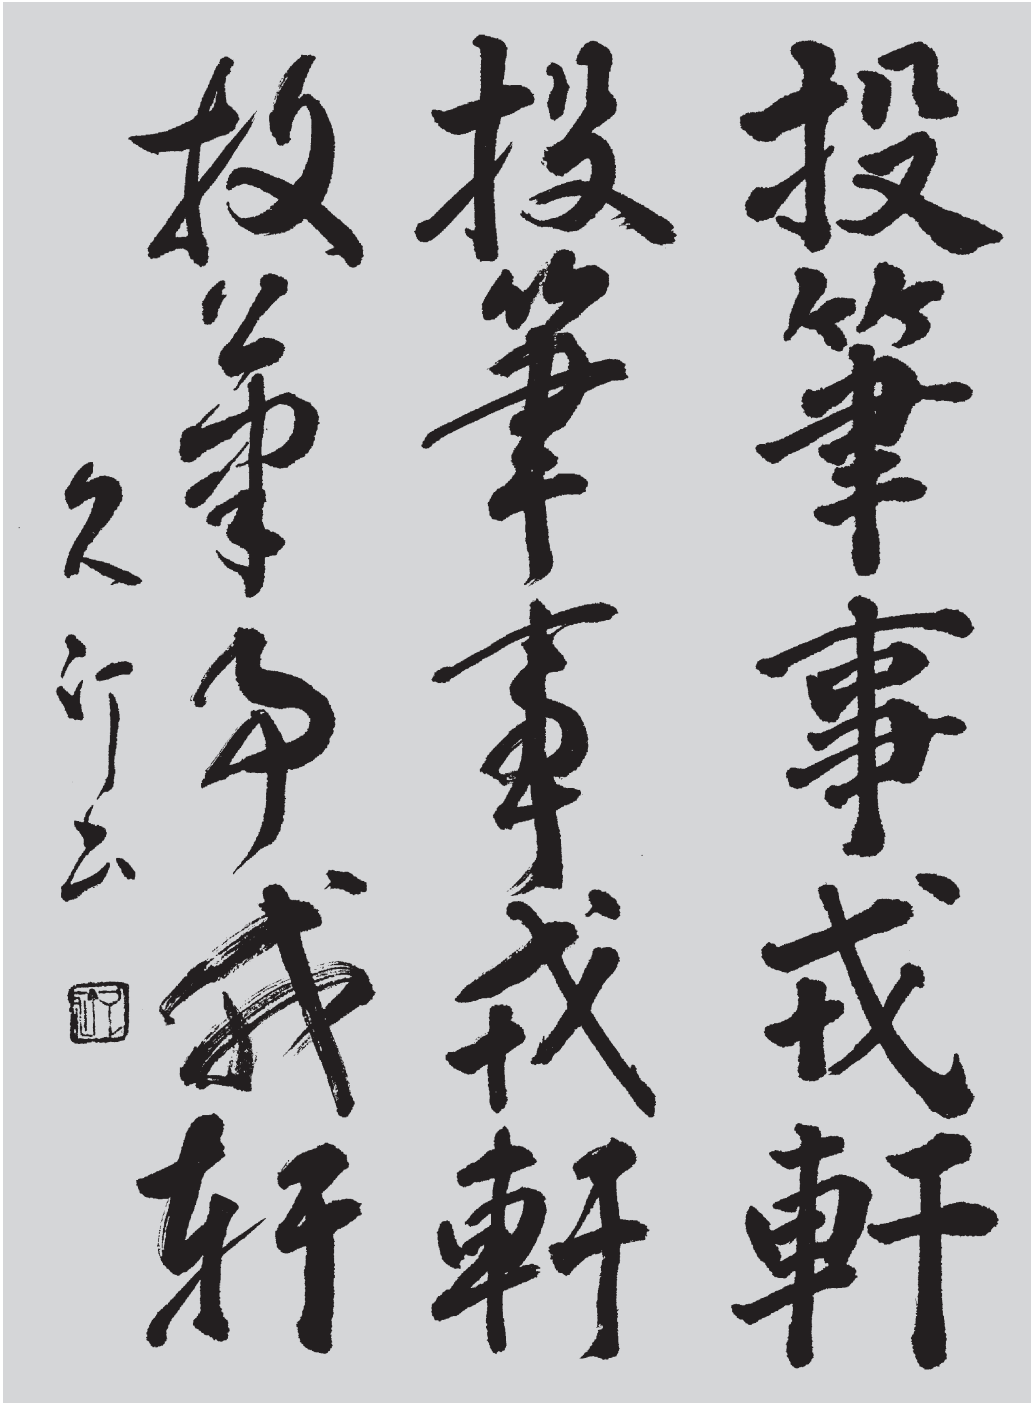 投筆事戎軒
投筆事戎軒
投筆事戎軒
久竹书